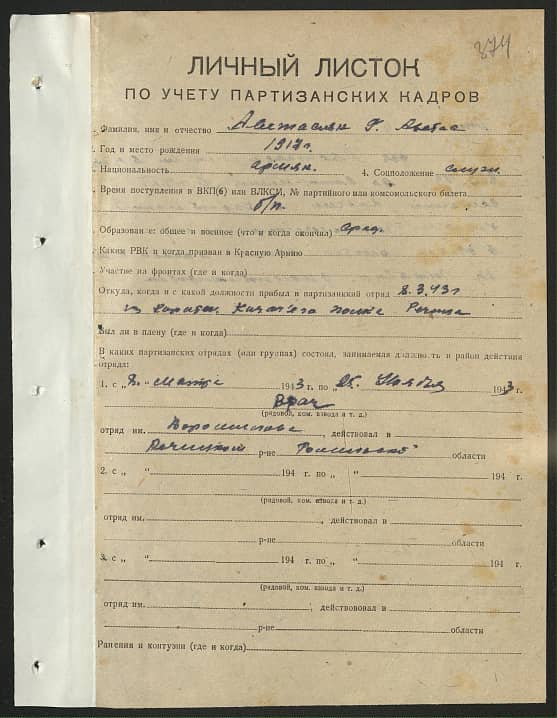 374
ЛИЧНЫЙ ЛИСТОК
ПО УЧЕТУ ПАРТИЗАНСКИХ КАДРОВ
Фамилия, имя и отчество Г.
2. Год и место рождения 1917 г.
Национальность армян. 4. Соцположение служ.
Время поступления в ВКП(б) или ВЛКСМ, № партийного или комсомольского билета
б/п.
Образование: общее и военное (что и когда окончил) сред.
Каким РВК и когда призван в Красную Армию
Участие на фронтах (где и когда)
Откуда, когда и с какой должности прибыл в партизанский отряд 8.3.43 г
из полка Речица
Был ли в плену (где и когда)
В каких партизанских отрядах (или группах) состоял, занимаемая должность и район действия
отряда:
1. с „8.“ марта 1943 г. по „25.“ Ноября 1943 г.
Врач
(рядовой, ком. взвода и т. д.)
отряд им. Ворошилова, действовал в
Речицком р-не Гомельской области
2. с „ “ 194 г. по „ “ 194 г.
(рядовой, ком. взвода и т. д.)
отряд им. , действовал в
р-не области
3. с „ “ 194 г. по „ “ 194 г.
(рядовой, ком. взвода и т. д.)
отряд им. , действововал в
р-не области
Ранения и контузии (где и когда)